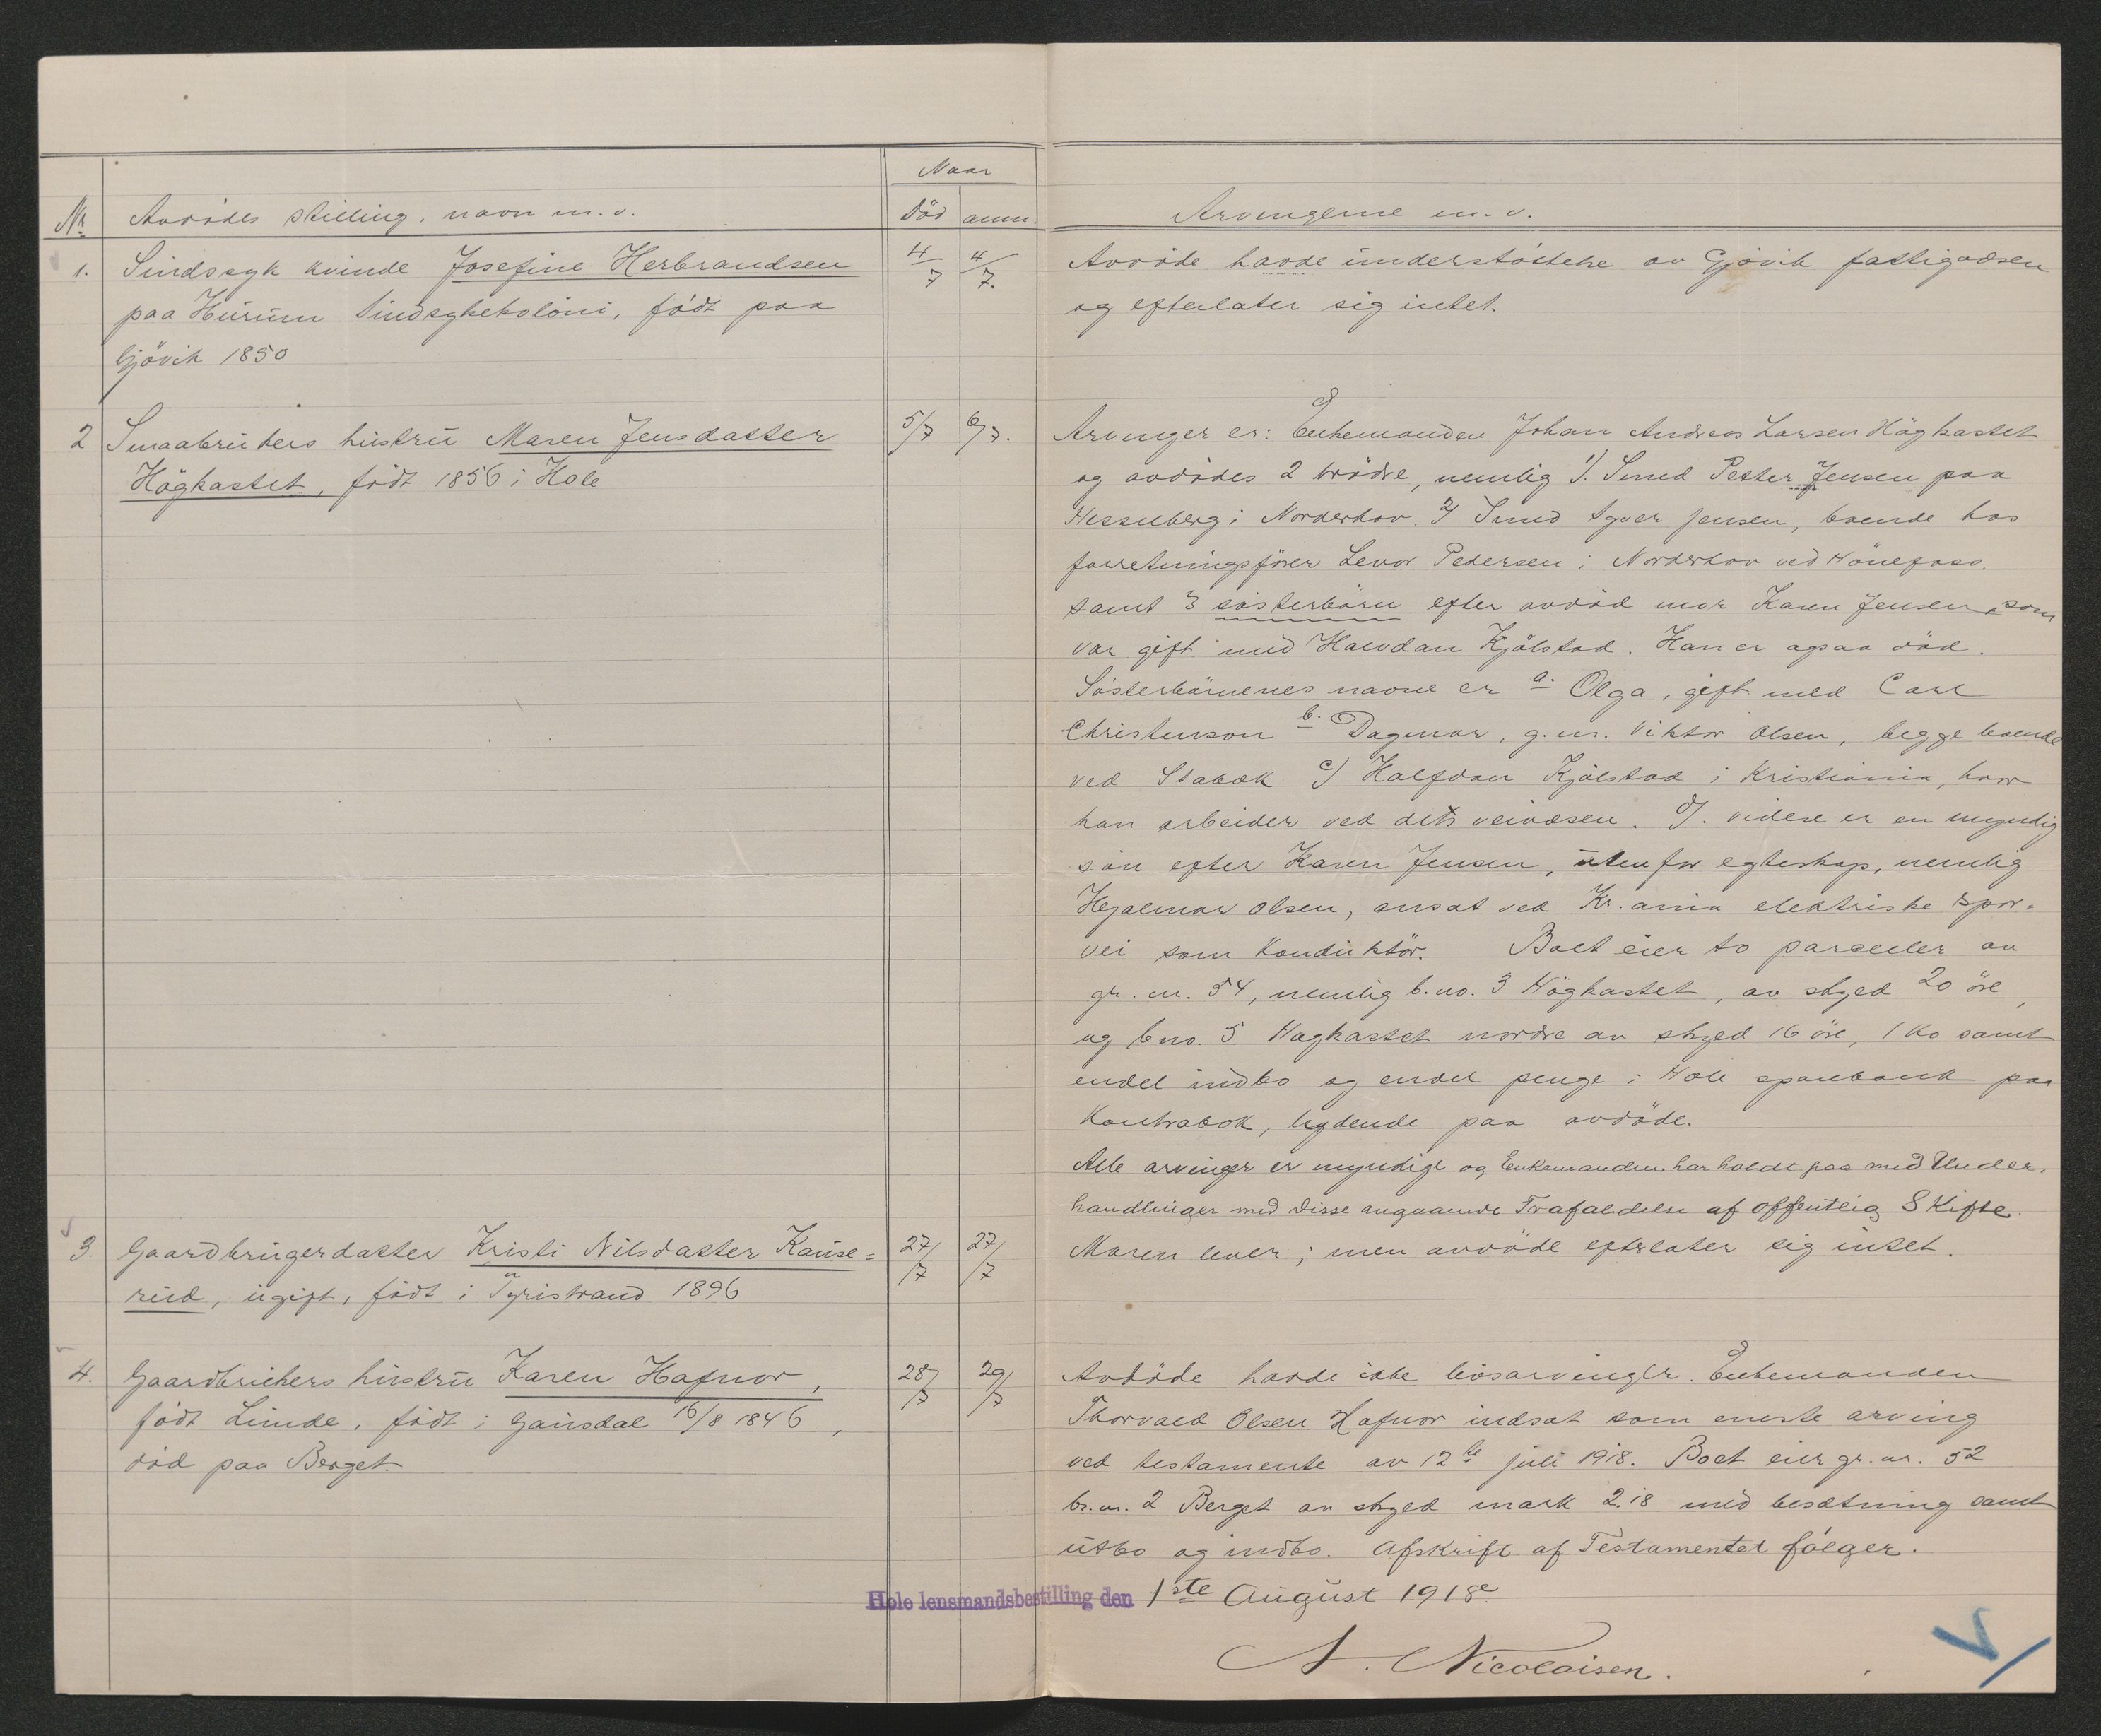 Naar
Nr. Avdödes stilling, navn m.v. Död anm. Arvingerne m.v.
1. Sindssyk kvinde Josefine Herbrandsen 4/7 4/7.
paa Hurum Sindsykekoloni, född paa
Gjövik 1850
Avdöde havde understöttelse av Gjövik fattigvæsen
og efterlater sig intet.
2 Smaabrukers hustru Maren Jensdatter 5/7 6/7.
Högkastet, född 1856 i Hole
Arvinger er: Enkemanden Johan Andreas Larsen Högkastet
og avdödes 2 brödre, nemlig 1). Smed Petter Jensen paa
Hesselberg i Norderhov. 2) Smed Syver Jensen, boende hos
forretningsförer Levor Pedersen i Norderhov ved Hönefoss.
samt 3 sösterbörn efter avdöd mor Karen Jensen, som
var gift med Halvdan Kjölstad. Han er ogsaa död.
Sösterbörnenes navne er a. Olga, gift med Carl
Christenson b. Dagmar, g.m. Viktor Olsen, begge boende
ved Stabæk c) Halfdan Kjölstad i Kristiania, hvor
han arbeider ved dets veivæsen. d). videre er en myndig
sön efter Karen Jensen, utenfor egteskap, nemlig
Hjalmar Olsen, ansat ved Kr.ania elektriske spor-
vei som Konduktör. Boet eier to parceller av
gr. nr. 54, nemlig b.no. 3 Högkastet, av skyld 20 öre,
og bno. 5 Høgkastet nordre av skyld 16 öre, 1 ko samt
endel indbo og endel penge i Hole sparebank paa
Kontrabok, lydende paa avdöde.
Alle arvinger er myndige og Enkemanden har holdt paa med Under-
handlinger med Disse angaaende Frafaldelse af offentlig Skifte.
3. Gaardbrugerdatter Kristi Nilsdatter Kause= 27/7 27/7
rud, ugift, född i Tyristrand 1896
Moren lever; men avdöde efterlater sig intet.
4. Gaardbrukers hustru Karen Hafnor, 28/7 29/7
född Linde, född i Gausdal 16/8 1846,
död paa Berget.
Avdöde havde ikke livsarvinger. Enkemanden
Thorvald Olsen Hafnor indsat som eneste arving
ved testamente av 12te juli 1918. Boet eier gr. nr. 52
br. nr. 2 Berget av skyld mark 2.18 med besætning samt
utbo og indbo. Afskrift af Testamentet fölger.
Hole lensmandsbestilling den 1ste August 1918.
A. Nicolaisen.